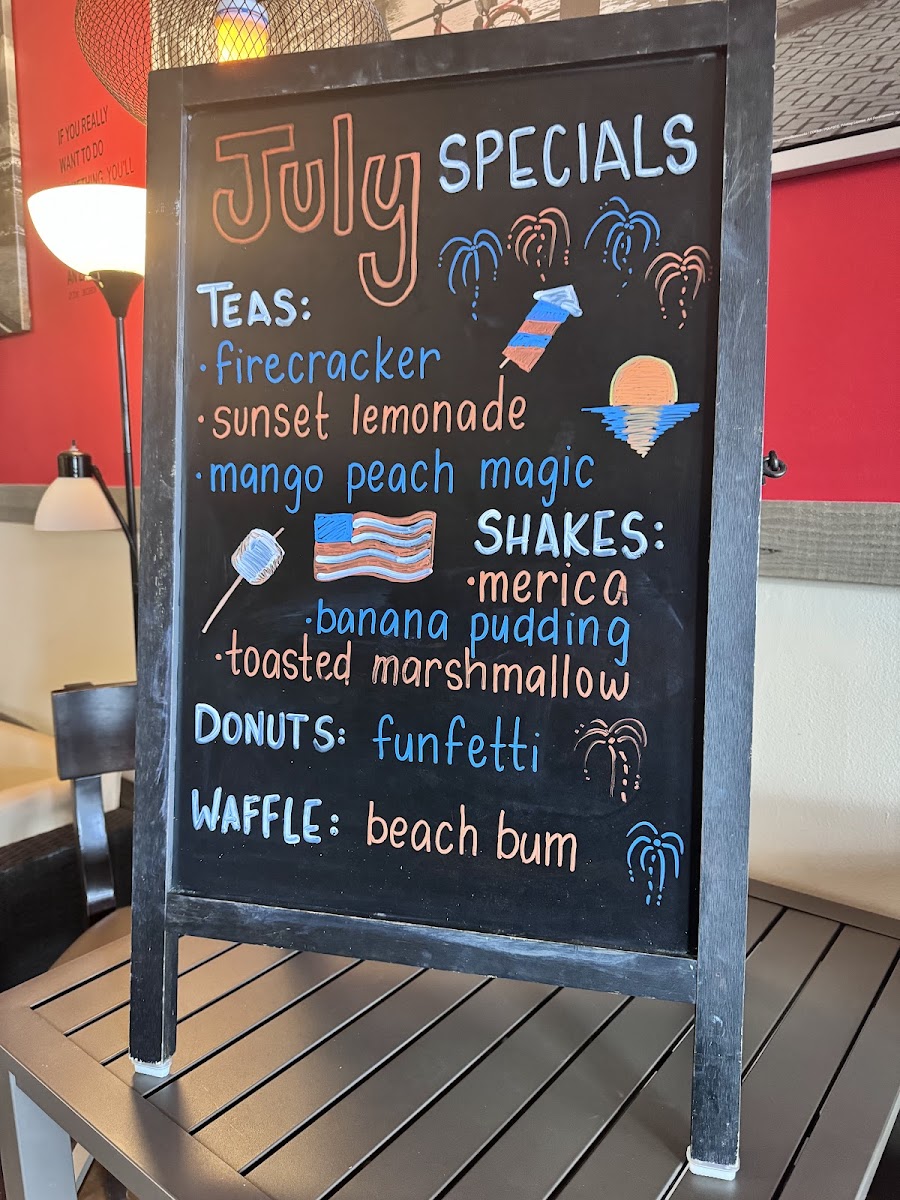 IF YOU REALLY
WANT TO DO
YOU'LL
July SPECIALS
TEAS:
·firecracker
·sunset lemonade
·mango peach magic
SHAKES:
·merica
·banana pudding
·toasted marshmallow
DONUTS: funfetti
WAFFLE: beach bum